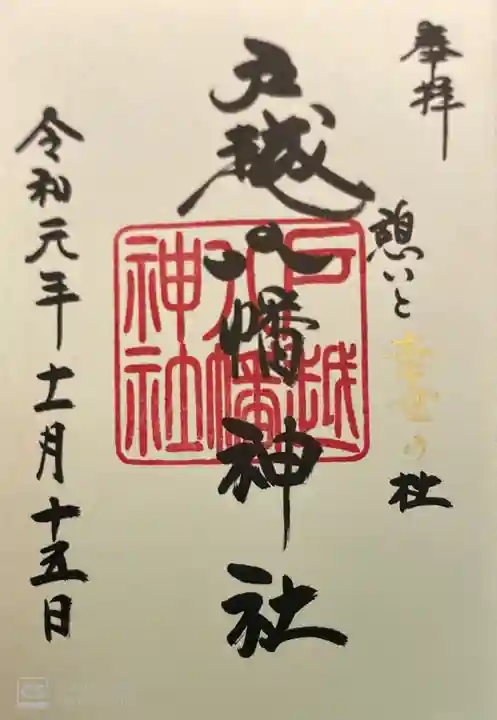 奉拝
憩いと幸世の杜
戸越八幡神社
戸越八幡神社
令和元年十一月十五日